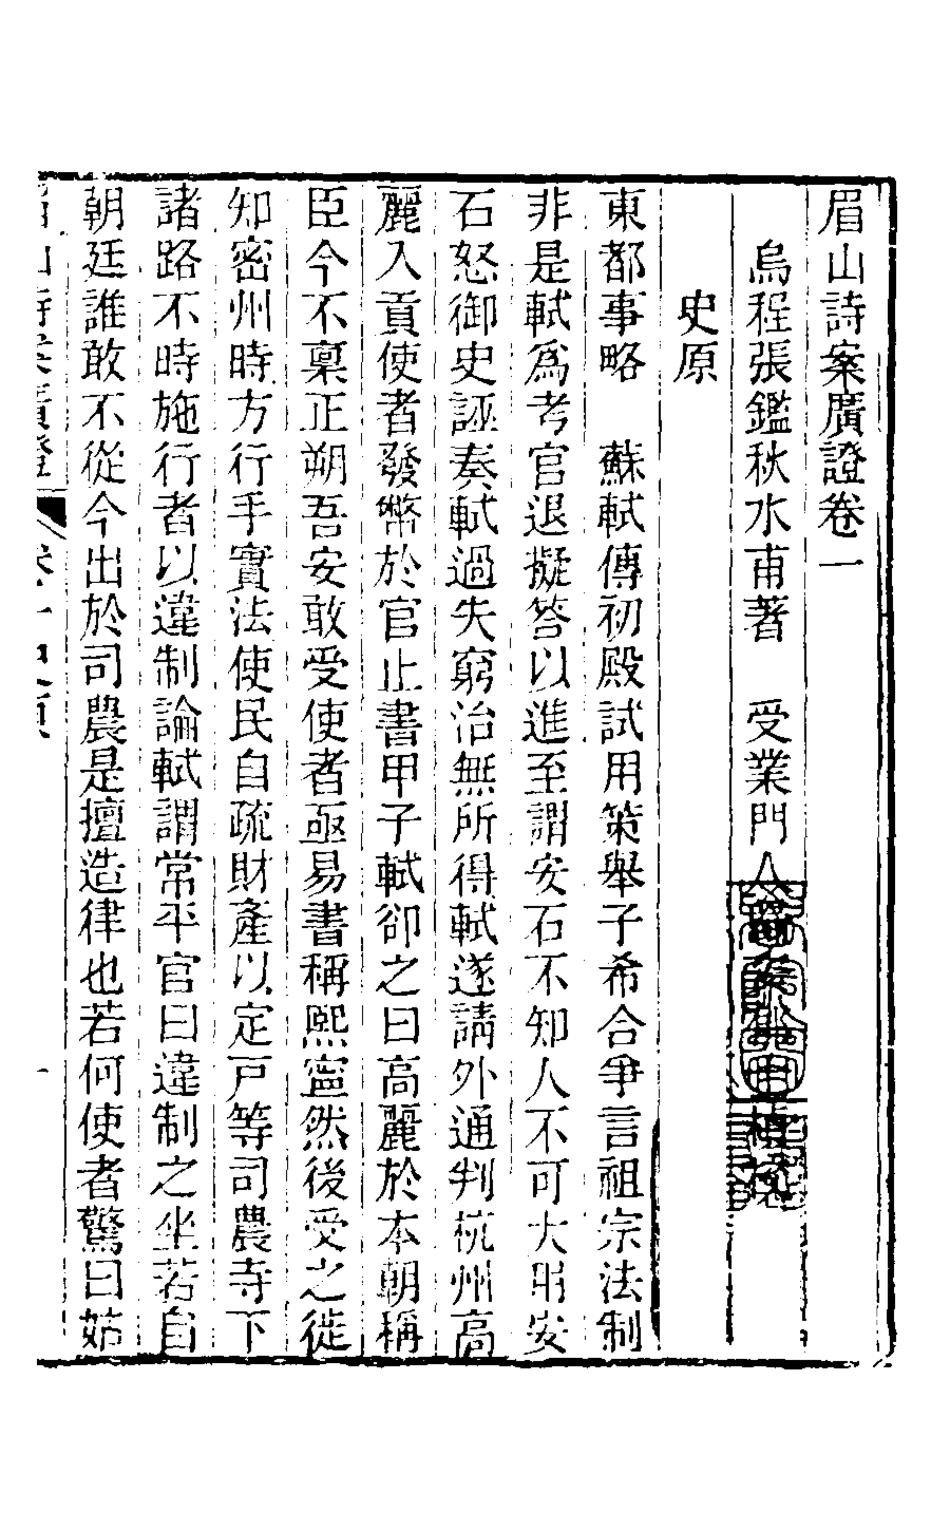 眉山詩案廣證卷一
烏程張鑑秋水甫著　受業門人
史原
東都事略　蘇軾傳初殿試用策舉子希合爭言祖宗法制
非是軾爲考官退擬答以進至謂安石不知人不可大用安
石怒御史誣奏軾過失窮治無所得軾遂請外通判杭州高
麗入貢使者發幣於官止書甲子軾卻之曰高麗於本朝稱
臣今不稟正朔吾安敢受使者亟易書稱熙寧然後受之徙
知密州時方行手實法使民自疏財產以定戸等司農寺下
諸路不時施行者以違制論軾謂常平官曰違制之坐若自
朝廷誰敢不從今出於司農是擅造律也若何使者驚曰姑
眉山詩案廣證　卷一史原　一